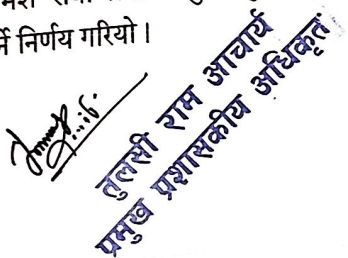 र्ने निर्णय गरियो ।
तुलसी राम आचार्य
प्रमुख प्रशासकीय अधिकृत